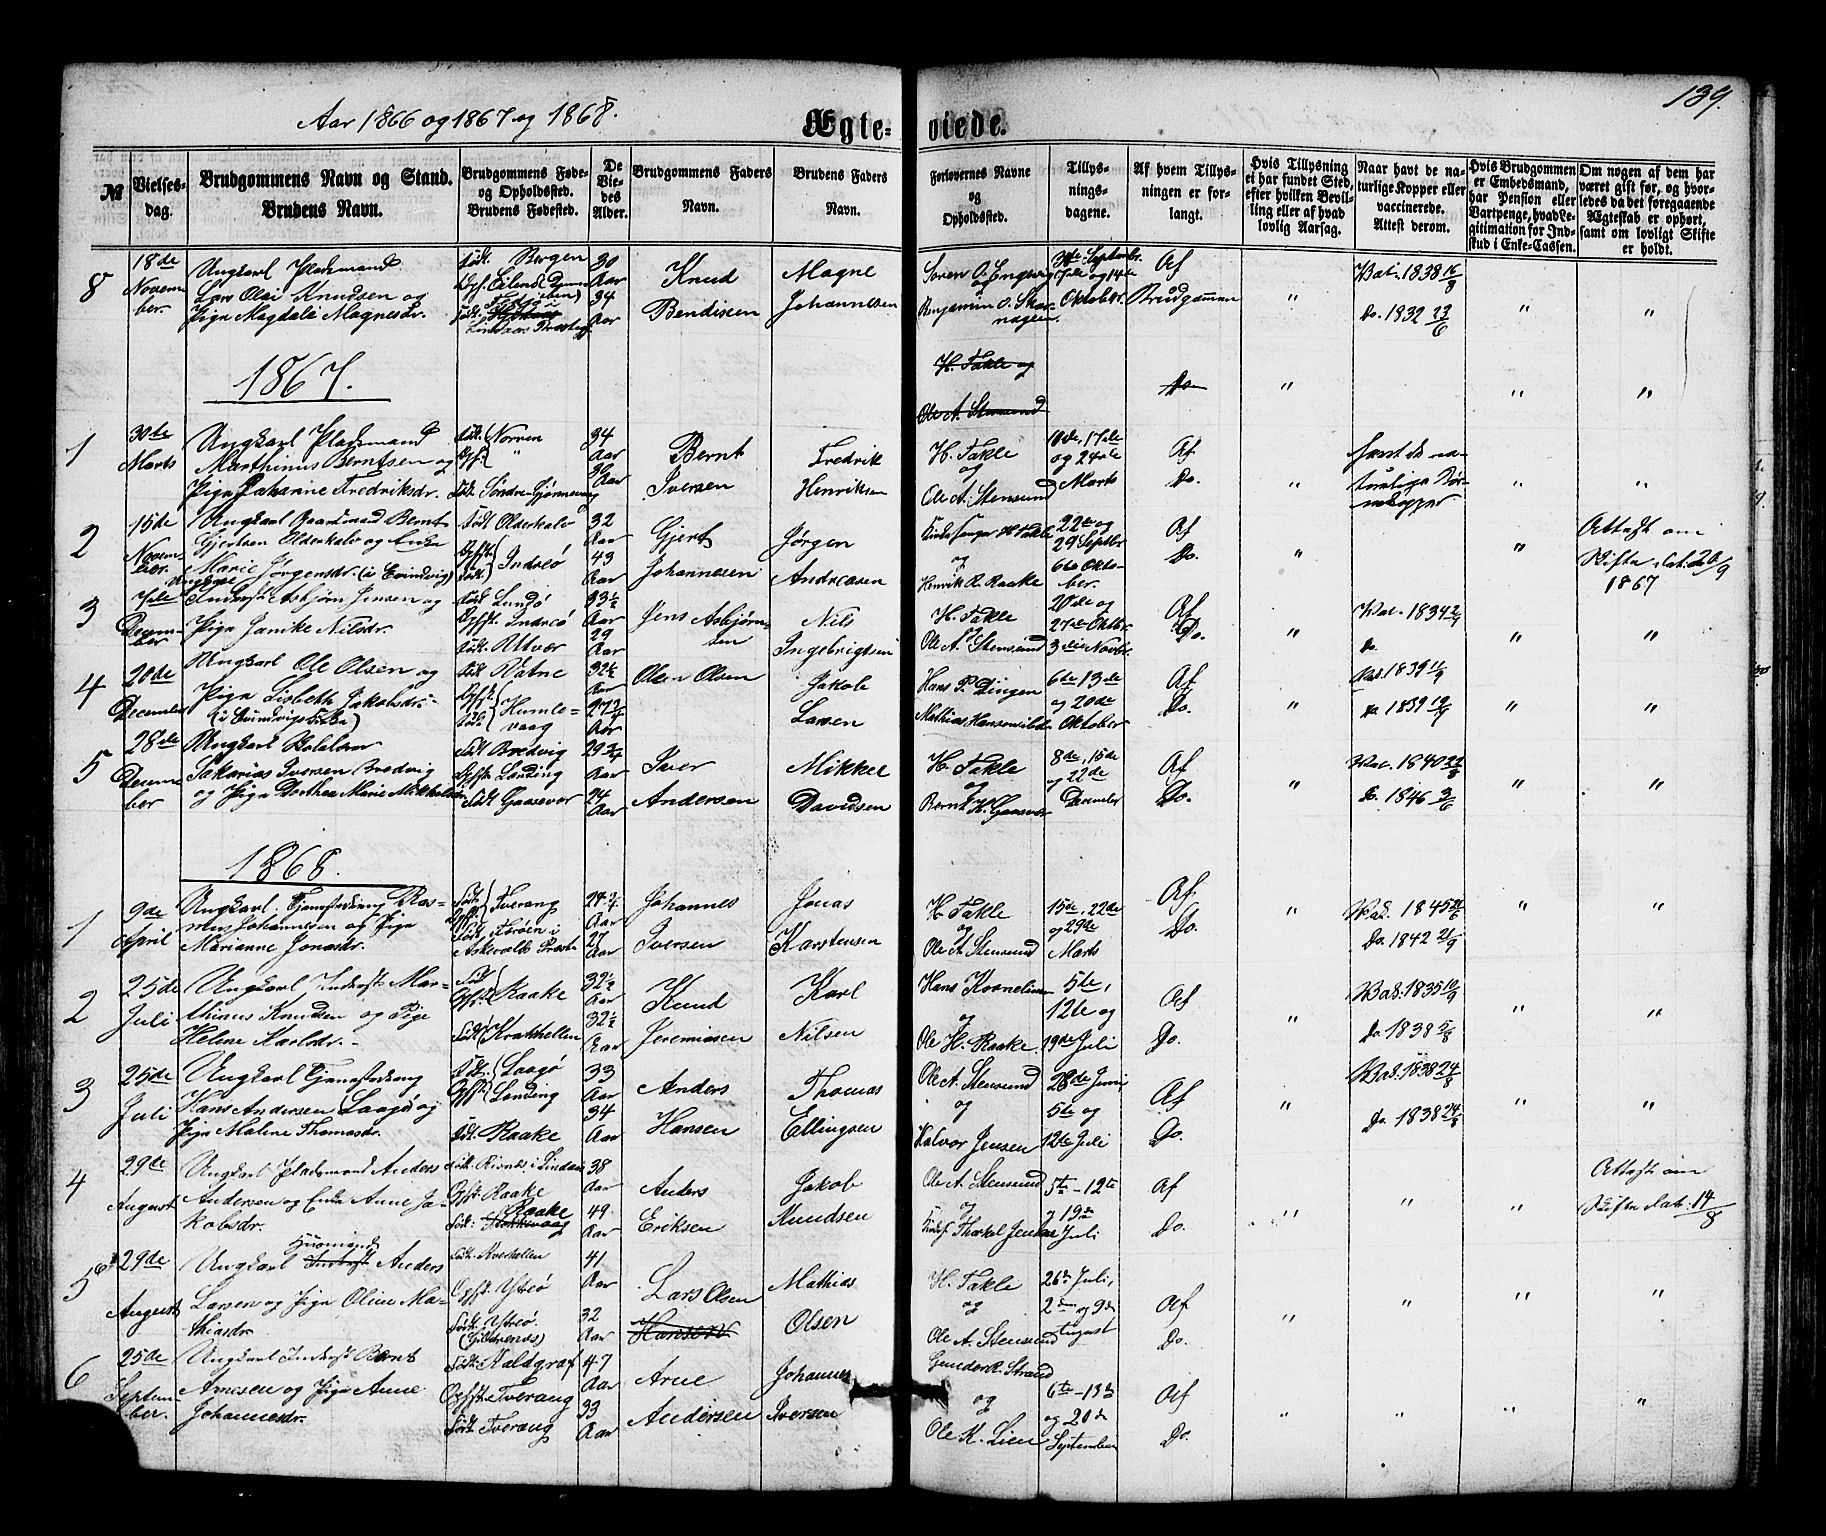 Aar 1866 og 1867 og 1868.
Ægteviede.
139.
№
Vielses-
dag.
Brudgommens Navn og Stand.
Brudens Navn.
Brudgommens Føde-
og Opholdssted.
Brudens Fødested.
De
Vie-
des
Alder.
Brudgommens Faders
Navn.
Brudens Faders
Navn.
Forlovernes Navne
og
Opholdssted.
Tillys-
nings-
dagene.
Af hvem Tillys-
ningen er for-
langt.
Hvis Tillysning
ei har fundet Sted,
efter hvilken Bevil-
ling eller af hvad
lovlig Aarsag.
Naar havt de na-
turlige Kopper eller
vaccinerede.
Attest derom.
Hvis Brudgommen
er Embedsmand,
har Pension eller
Vartpenge, hvad Le-
gitimation for Ind-
skud i Enke-Cassen.
Om nogen af dem har
været gift før, og hvor-
ledes da det foregaaende
Ægteskab er ophørt,
samt om lovligt Skifte
er holdt.
8
18de
Novem-
ber.
Ungkarl Pladsmand
Lars Olai Knudsen og
Pige Magdali Magnesdr.
Født Bergen
30
Aar
34
Aar
Knud
Bendixen
Magne
Johannesen
Søren O. Engevig
og
Benjamin O. Skar-
7de og 14de
Oktober.
Af
Brudgommen
"
Vac. 1838 16/8
Do. 1832 23/6
"
"
1867.
H. Takle og
Ole A. Stensund
Do
"
"
"
1
30te
Marts
Ungkarl Pladsmand
Marthinus Berntsen og
Pige Johanne Fredriksdr.
Født Norven
"
34
Aar
30
Aar
Bernt
Iversen
Fredrik
Henriksen
H. Takle
og
Ole A. Stensund
10de, 17de
og 24de
Marts
Af
Do.
"
havt de na-
turlige Bør-
nekopper
"
"
2
15de
Novem-
ber.
Ungkarl Gaardmand Bernt
Gjertsen Olderkalv og Enke
Marie Jørgensdr. (i Evindvig)
Født Olderkalv
Indreø
32
Aar
43
Aar
Gjert
Johannesen
Jørgen
Andreasen
H. Takle
og
Henrik R. Raake
22de og
29 Septbr
6te Okto-
ber.
Af
Do.
"
"
Attest om
Skifte dat. 20/9
1867
3
7de
Decem-
ber
Ungkarl
Inderst Asbjørn Jensen og
Pige Janike Nilsdr.
Født Lundø
Opfst. Indreø
Født Utvær
33½
Aar
29
Aar
Jens Asbjørn-
sen
Nils
Ingebrigtsen
H. Takle
og
Ole A. Stensund
20de og
27de Oktbr.
3die Novbr.
Af
Do.
"
Do.
"
"
4
20de
December
Ungkarl Ole Olsen og
Pige Lisbeth Jakobsdr.
Født Vatne
Humle-
vaag
32½
Aar
Aar
Olsen Olsen
Jakob
Larsen
Hans P. Dingen
6te 13de
og 20de
Oktober
Af
Do.
"
Vac. 1839 11/9
"
"
5
28de
Decem-
ber
Ungkarl
Sakarias Iversen Bredvig
og Pige Dorthea Marie Mikkelsdr.
Født Bredvig
Opfst. Landing
Født Gaasevær
29¾
Aar
24
Aar
Iver
Andersen
Mikkel
Davidsen
H. Takle
og
Bernt H. Gaasvær
8de, 15de
og 22de
December
Af
Do.
"
Do. 1846 3/6
"
"
1868.
1
9de
April
Ungkarl Tjenestedreng Ras-
mus Johannesen og Pige
Marianne Jonasdr.
Tverang
Askevolds Præst.
Aar
27
Aar
Johannes
Iversen
Jonas
Karstensen
H. Takle
og
Ole A. Stensund
15de, 22de
og 29de
Marts
Af
Do.
"
Vac. 1845
Do. 1842 21/9
"
"
2
25de
Juli
Ungkarl Inderst Mar-
thinus Knudsen og Pige
Helene Karlsdr.
Raake
Født Krakhellen
32½
Aar
32½
Aar
Knud
Jeremiasen
Karl
Nilsen
Hans Kornelius
og
Ole H. Raake
5te,
12te og
19de Juli
Af
Do.
"
Vac. 1835 10/9
Do. 1838 5/8
"
"
3
25de
Juli
Ungkarl Tjenestedreng
Hans Andersen Laagø og
Pige Malene Thomasdr.
Født Laagø
Opfst. Landing
Født Raake
33
Aar
34
Aar
Anders
Hansen
Thomas
Ellingsen
Ole A. Stensund
og
Halvor Jensen
28de Juni
5te og
12te Juli
Af
Do.
"
Vac. 1838 24/8
Do. 1838 24/8
"
"
4
29de
August
Ungkarl Pladsmand Anders
Andersen og Enke Anne Ja-
kobsdr.
Opfst. Raake
Raake
38
Aar
49
Aar
Anders
Eriksen
Jakob
Knudsen
Ole A. Stensund
og
5te-12te
og 19de
Juli
Af
Do.
"
"
"
Attest om
Skifte dat. 14/8
5
29de
August
Ungkarl Huusmand Inderst Anders
Larsen og Pige Oline Ma-
thiasdr.
Opfst. Ytreø
Født Ytreø.
41
Aar
32
Aar
Lars Olsen
Hansen
Mathias
Olsen
H. Takle
og
Ole A. Stensund
26de Juli,
2den og 9de
August
Af
Do.
"
"
"
"
6
25de
Septem-
ber.
Ungkarl Inderst Bernt
Arnesen og Pige Anne
Johannesdr.
Født Kaldgraf
Opfst. Tverang
Født Tverang
47
Aar
33
Aar
Arne
Andersen
Johannes
Iversen
Gunder R. Strand
og
Ole K. Lien
6te-13de
og 20de
September
Af
Do.
"
"
"
"